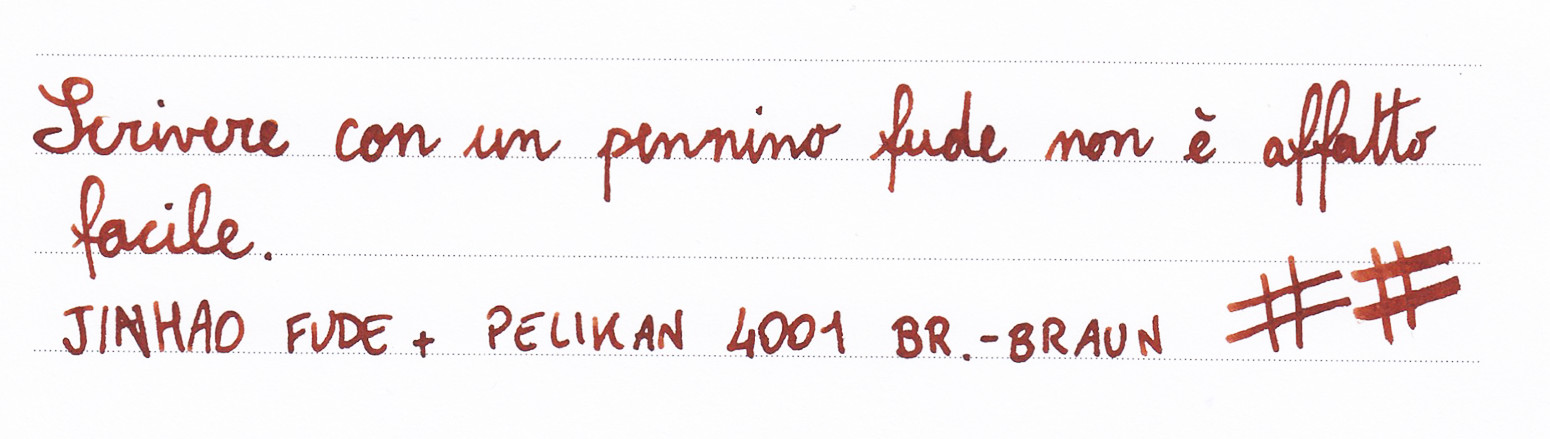 Scrivere con un pennino fude non è affatto
facile.
JINHAO FUDE + PELIKAN 4001 BR.-BRAUN